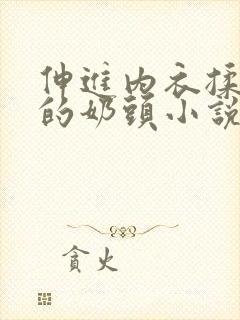 伸進内衣揉
的奶頭小説
貪火